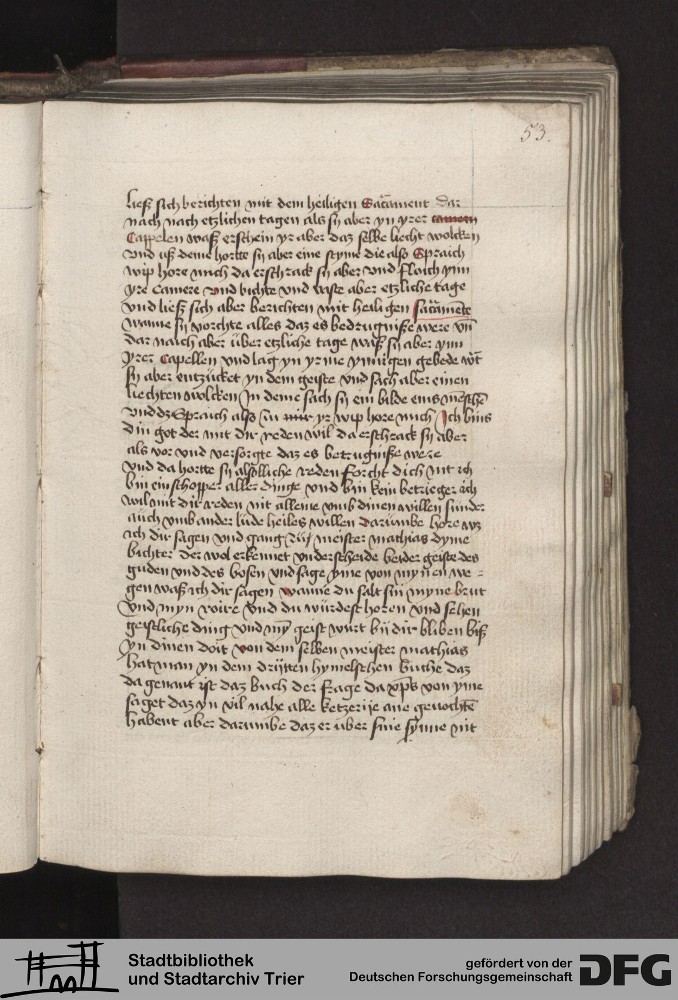 53.
ließ sich berichten mit dem heiligen Sacrament dar
nach nach etzlichen tagen als sy aber yn yrer camern
Cappelen waß erschein yr aber daz selbe liecht wolcken
und uß deme hortte sy aber eine styme die also Spraich
wip hore mich da erschrack sy aber und floich ynn
yre camere und bichte und vaste aber etzliche tage
und ließ sich aber berichten mit heiligen sacramente
wanne sy vorchte alles daz es bedrugniße were vn̄
dar naich aber über etzliche tage waß sy aber ynn
yrer Capellen und lag yn yrme ynnigen gebede wt
sy aber entzücket yn dem geiste und sach aber einen
liechten wolcken In deme sach sy ein bilde eins mēschē
und dz Spraich also zu yr wip hore mich Ich bins
din got der mit dir reden wil da erschrack sy aber
als vor und versorgte daz es betrugniße were
und da hortte sy alsolliche reden forcht dich nit ich
bin ein schopper aller dinge und bin kein betrieger ich
wil mit dir reden nit alleine umb dinen willen sunder
auch umb ander lüde heiles willen darumbe hore wz
ich dir sagen und gang zu meister mathias dyme
bichter der wol erkennet underscheide beider geiste des
guden und des bosen und sage yme von mynen we-
gen waß ich dir sagen wanne du salt sin myne brut
und myn und du würdest horen und sehen
geistliche ding und my̅ geist wurt by dir bliben biß
yn dinen doit von dem selben meister mathias
hat man yn dem drytten hymelschen buche daz
da genant ist daz buch der frage da xp̄s von yme
saget daz yn vil nahe alle ketzerije ane gevochtē
habent aber darumbe daz er über sine synne nit
Stadtbibliothek
und Stadtarchiv Trier
gefördert von der
Deutschen Forschungsgemeinschaft
DFG